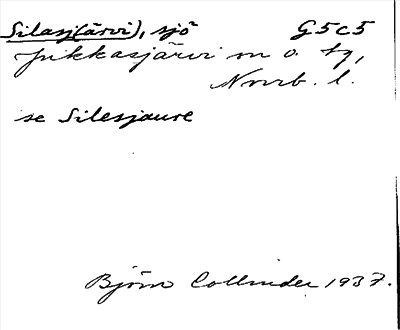 Silasj(ärvi), sjö G5c5
Jukkasjärvi sn o. tg,
Norrb. l.
se Silesjaure
Björn Collinder 1937.